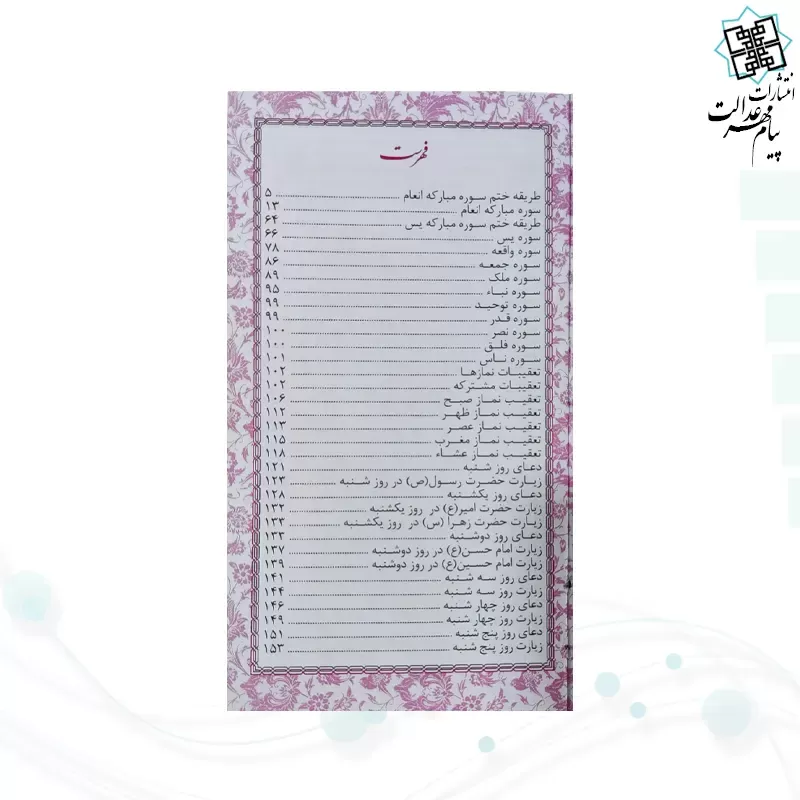 انتشارات
پیام مهر عدالت
فهرست
طریقه ختم سوره مبارکه انعام ۵
سوره مبارکه انعام ۱۳
طریقه ختم سوره مبارکه یس ۶۴
سوره یس ۶۶
سوره واقعه ۷۸
سوره جمعه ۸۶
سوره ملک ۸۹
سوره نباء ۹۵
سوره توحید ۹۹
سوره قدر ۹۹
سوره نصر ۱۰۰
سوره فلق ۱۰۰
سوره ناس ۱۰۱
تعقیبات نمازها ۱۰۲
تعقیبات مشترکه ۱۰۲
تعقیب نماز صبح ۱۰۶
تعقیب نماز ظهر ۱۱۲
تعقیب نماز عصر ۱۱۳
تعقیب نماز مغرب ۱۱۵
تعقیب نماز عشاء ۱۱۸
دعای روز شنبه ۱۲۱
زیارت حضرت رسول(ص) در روز شنبه ۱۲۳
دعای روز یکشنبه ۱۲۸
زیارت حضرت امیر(ع) در روز یکشنبه ۱۳۲
زیارت حضرت زهرا (س) در روز یکشنبه ۱۳۳
دعای روز دوشنبه ۱۳۳
زیارت امام حسن(ع) در روز دوشنبه ۱۳۷
زیارت امام حسین(ع) در روز دوشنبه ۱۳۹
دعای روز سه شنبه ۱۴۱
زیارت روز سه شنبه ۱۴۴
دعای روز چهار شنبه ۱۴۶
زیارت روز چهار شنبه ۱۴۹
دعای روز پنج شنبه ۱۵۱
زیارت روز پنج شنبه ۱۵۳